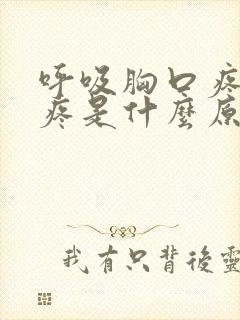 呼吸胸口疼
疼是什麼原
我有只背後靈